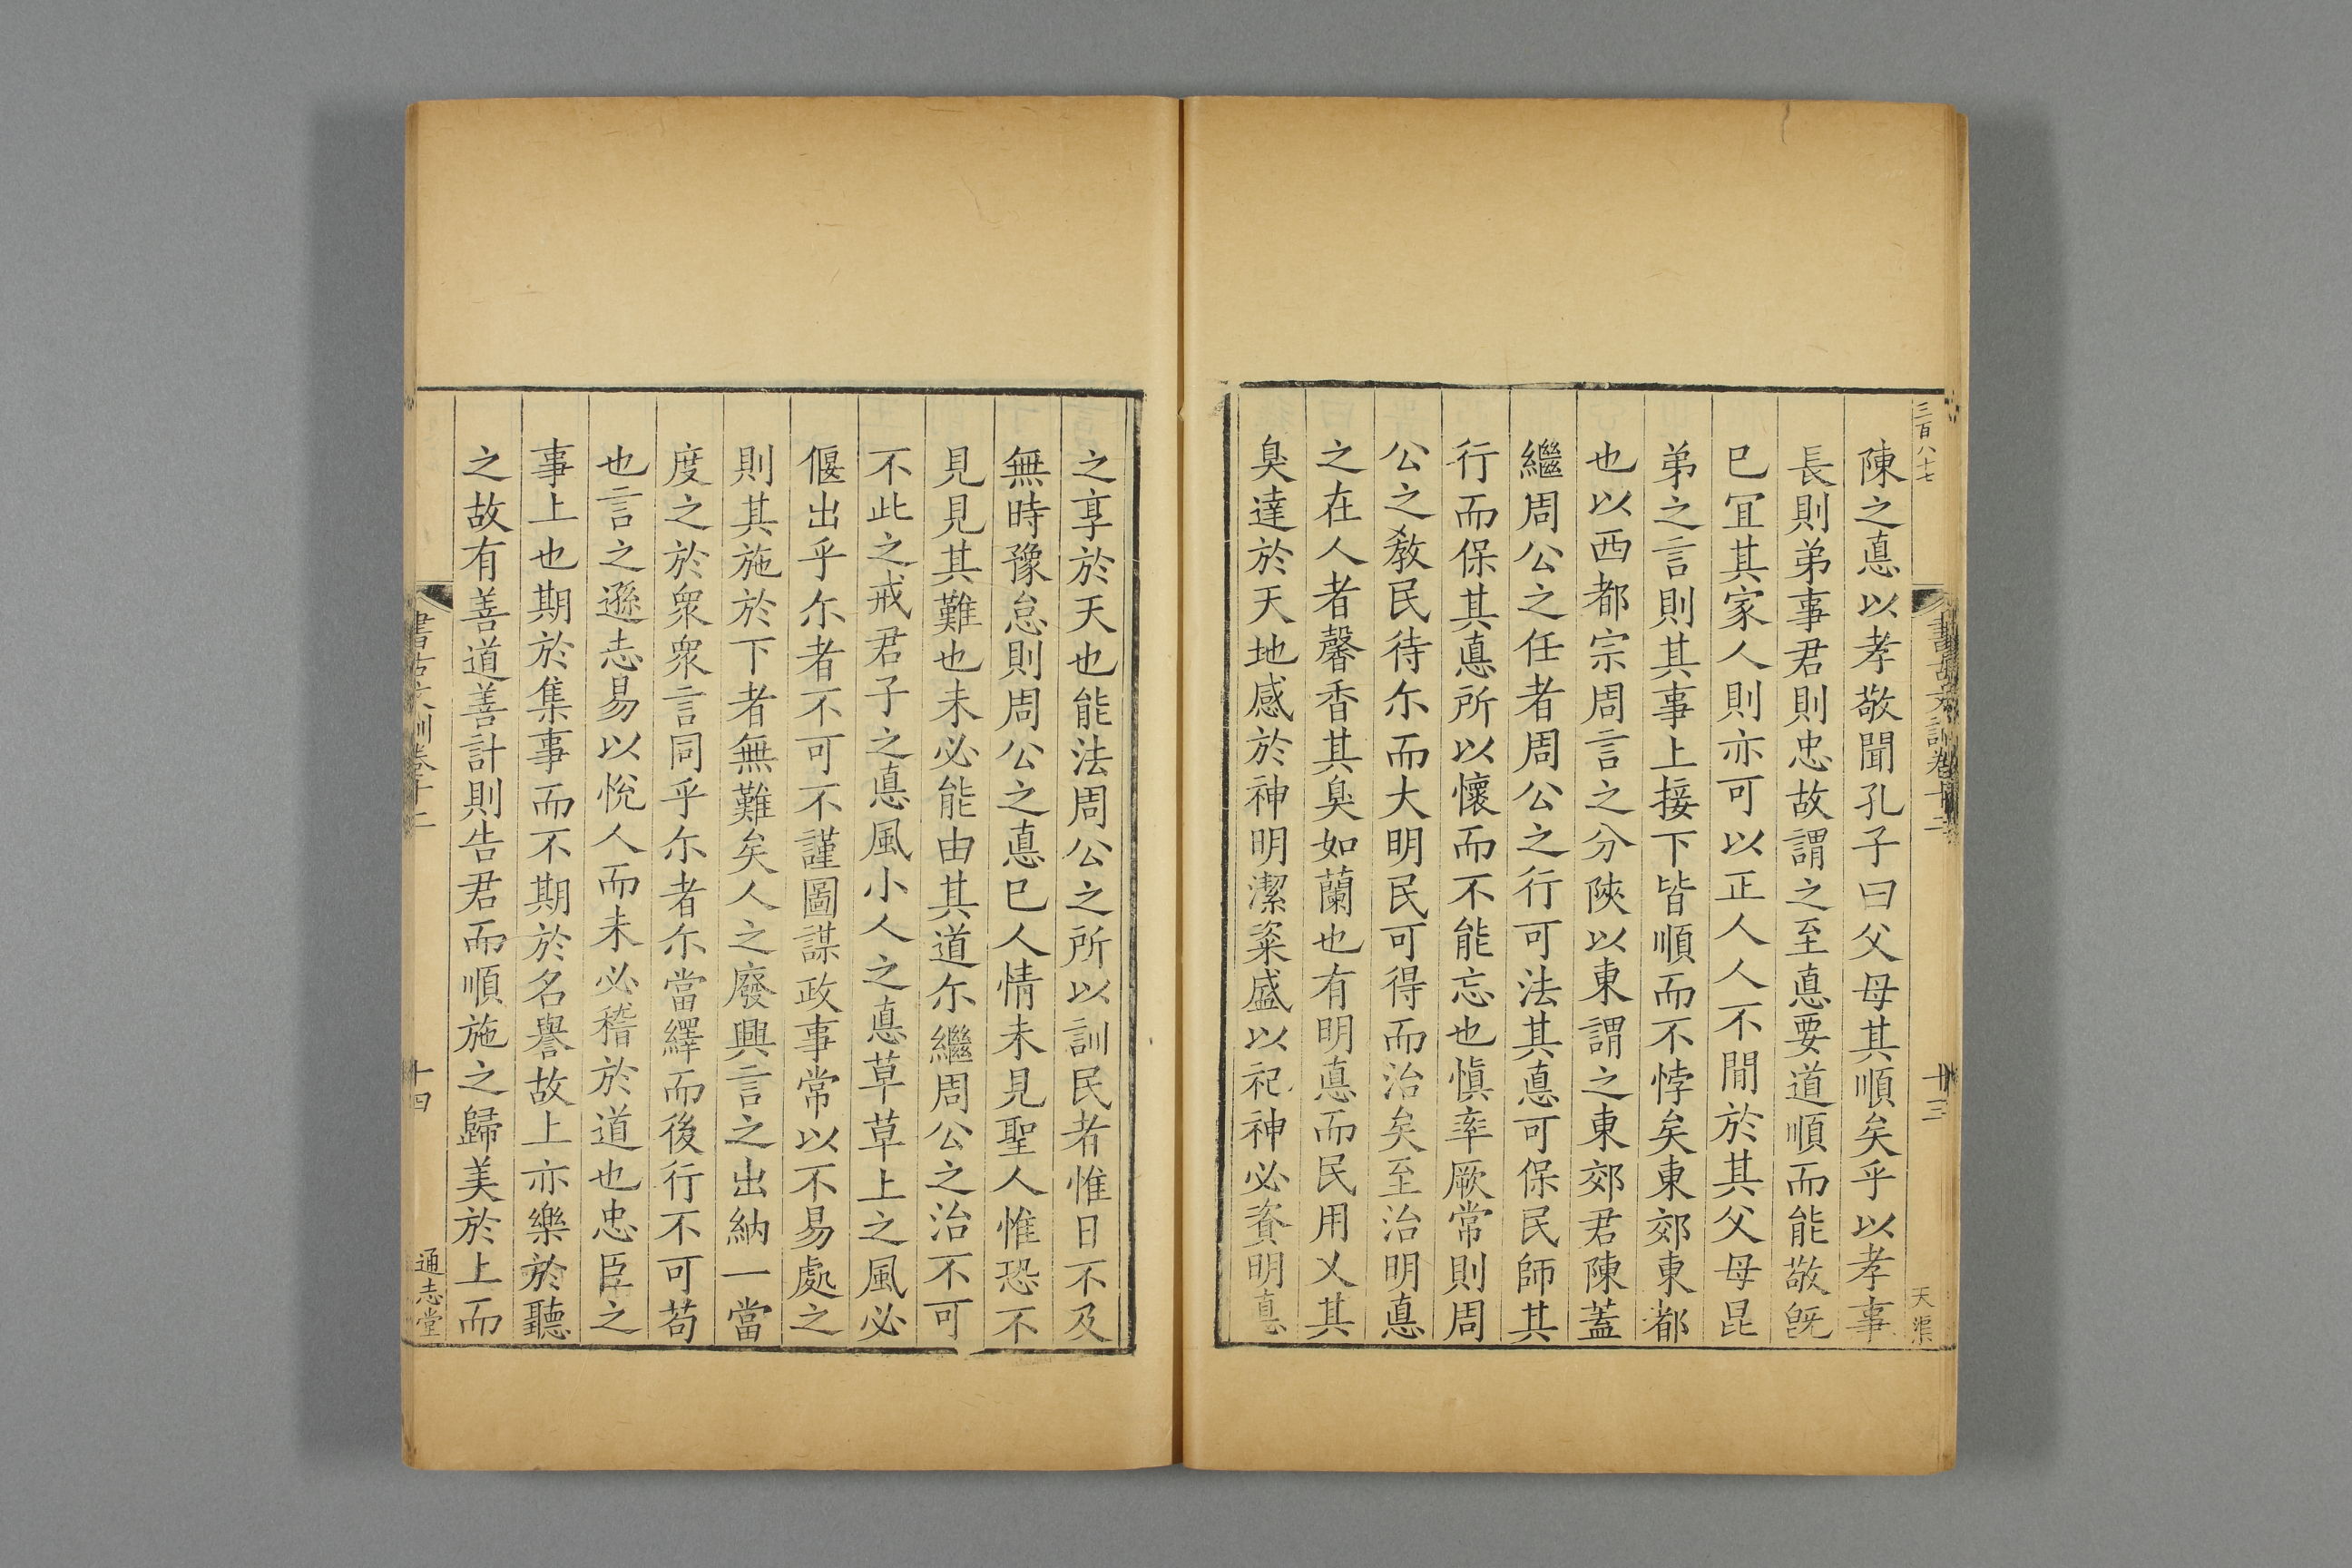 三百八十七
書古文訓卷十二
十三
天渠
陳之悳以孝敬聞孔子曰父母其順矣乎以孝事
長則弟事君則忠故謂之至悳要道順而能敬旣
巳冝其家人則亦可以正人人不閒於其父母昆
弟之言則其事上接下皆順而不悖矣東郊東都
也以西都宗周言之分陝以東謂之東郊君陳蓋
繼周公之任者周公之行可法其悳可保民師其
行而保其悳所以懷而不能忘也愼率厥常則周
公之敎民待尒而大明民可得而治矣至治明悳
之在人者馨香其臭如蘭也有明悳而民用乂其
臭達於天地感於神明潔粢盛以祀神必資明悳
之享於天也能法周公之所以訓民者惟日不及
無時豫怠則周公之悳巳人情未見聖人惟恐不
見見其難也未必能由其道尒繼周公之治不可
不此之戒君子之悳風小人之悳草草上之風必
偃出乎尒者不可不謹圖謀政事常以不易處之
則其施於下者無難矣人之廢興言之出納一當
度之於衆衆言同乎尒者尒當繹而後行不可苟
也言之遜志易以悅人而未必稽於道也忠臣之
事上也期於集事而不期於名譽故上亦樂於聽
之故有善道善計則告君而順施之歸美於上而
書古文訓卷十二
十四
通志堂